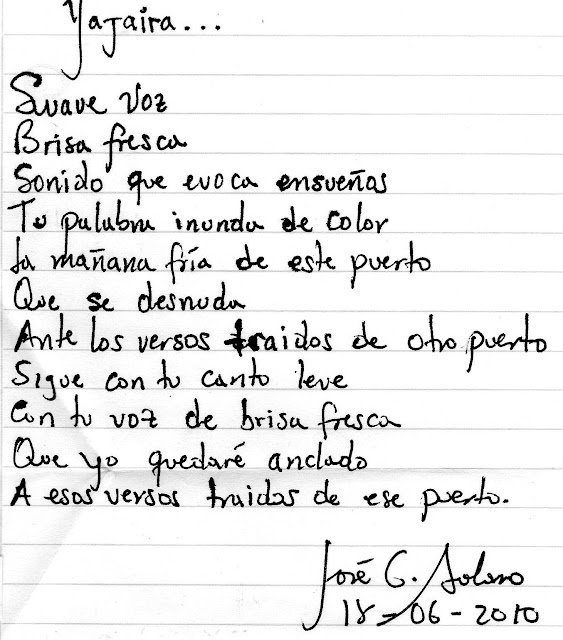 Yajaira...
Suave Voz
Brisa fresca
Sonido que evoca ensueños
Tu palabra inunda de color
La mañana fría de este puerto
Que se desnuda
Ante los versos traidos de otro puerto
Sigue con tu canto leve
Con tu voz de brisa fresca
Que yo quedaré anclado
A esos versos traidos de ese puerto.
José G.
18-06-2010